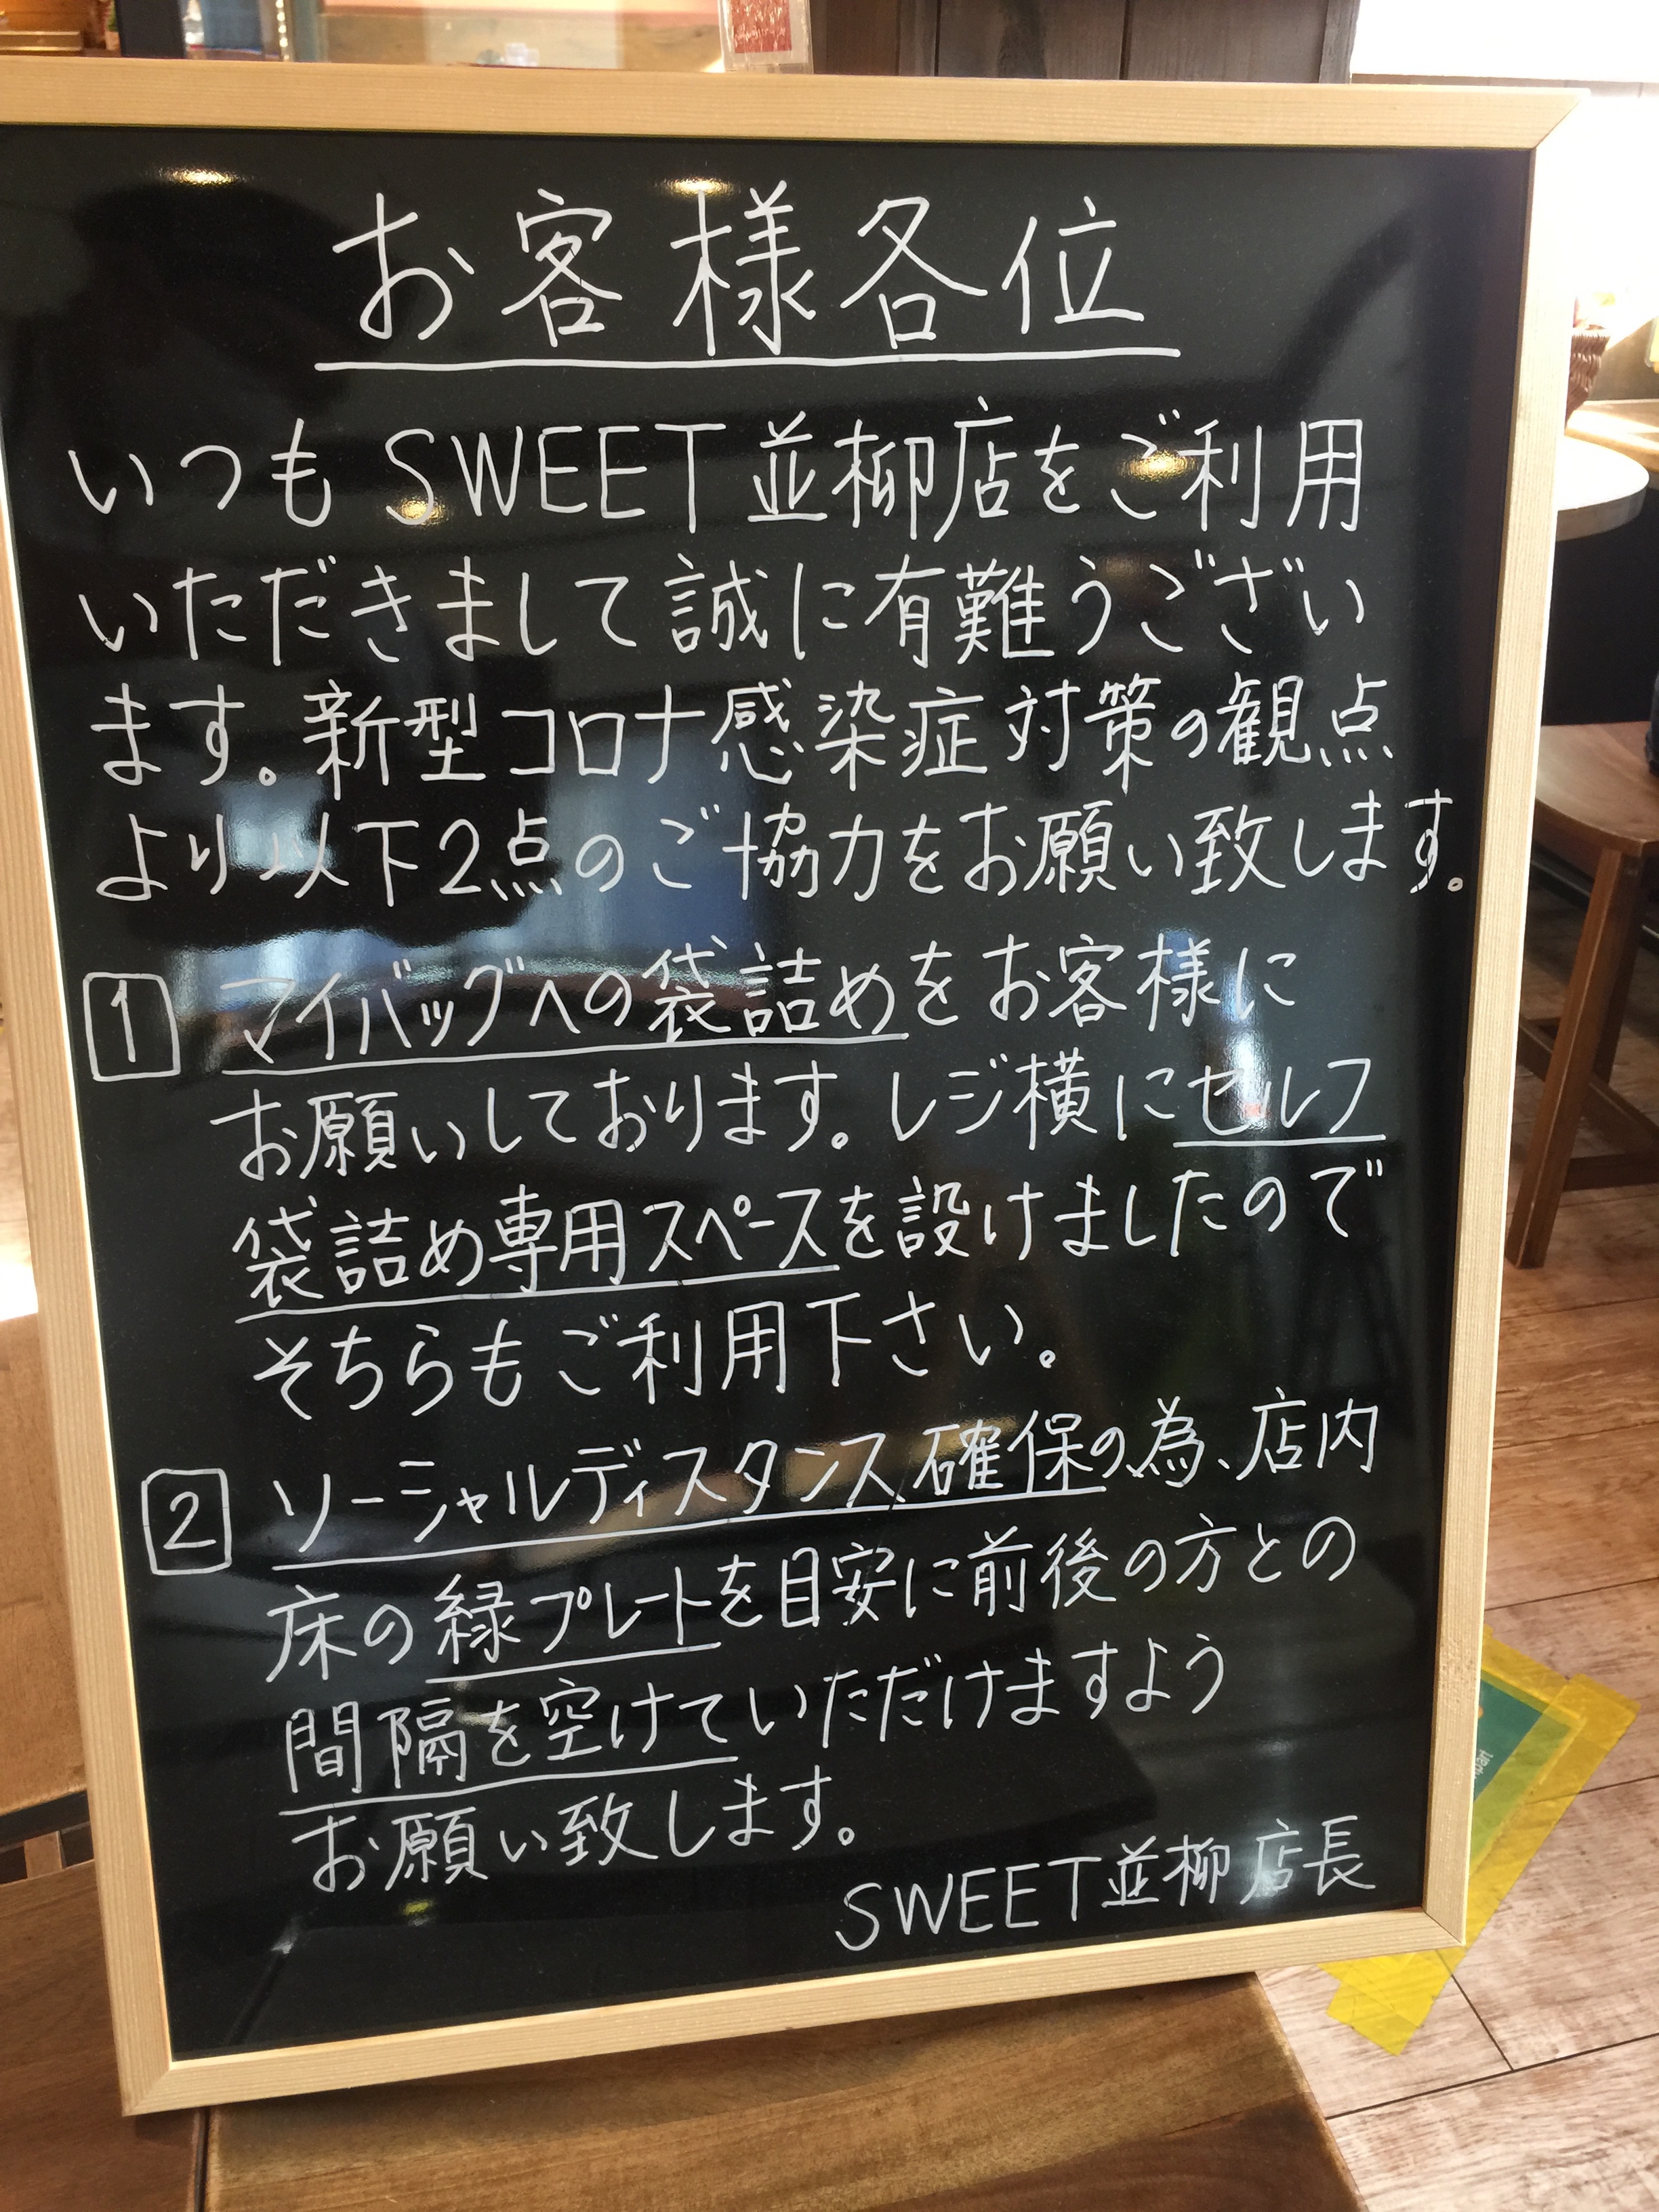 お客様各位
いつもSWEET並柳店をご利用
いただきまして誠に有難うござい
ます。新型コロナ感染症対策の観点
より以下2点のご協力をお願い致します。
1 マイバッグへの袋詰めをお客様に
お願いしております。レジ横にセルフ
袋詰め専用スペースを設けましたので
そちらもご利用下さい。
2 ソーシャルディスタンス確保の為、店内
床の緑プレートを目安に前後の方との
間隔を空けていただけますよう
お願い致します。
SWEET並柳店長